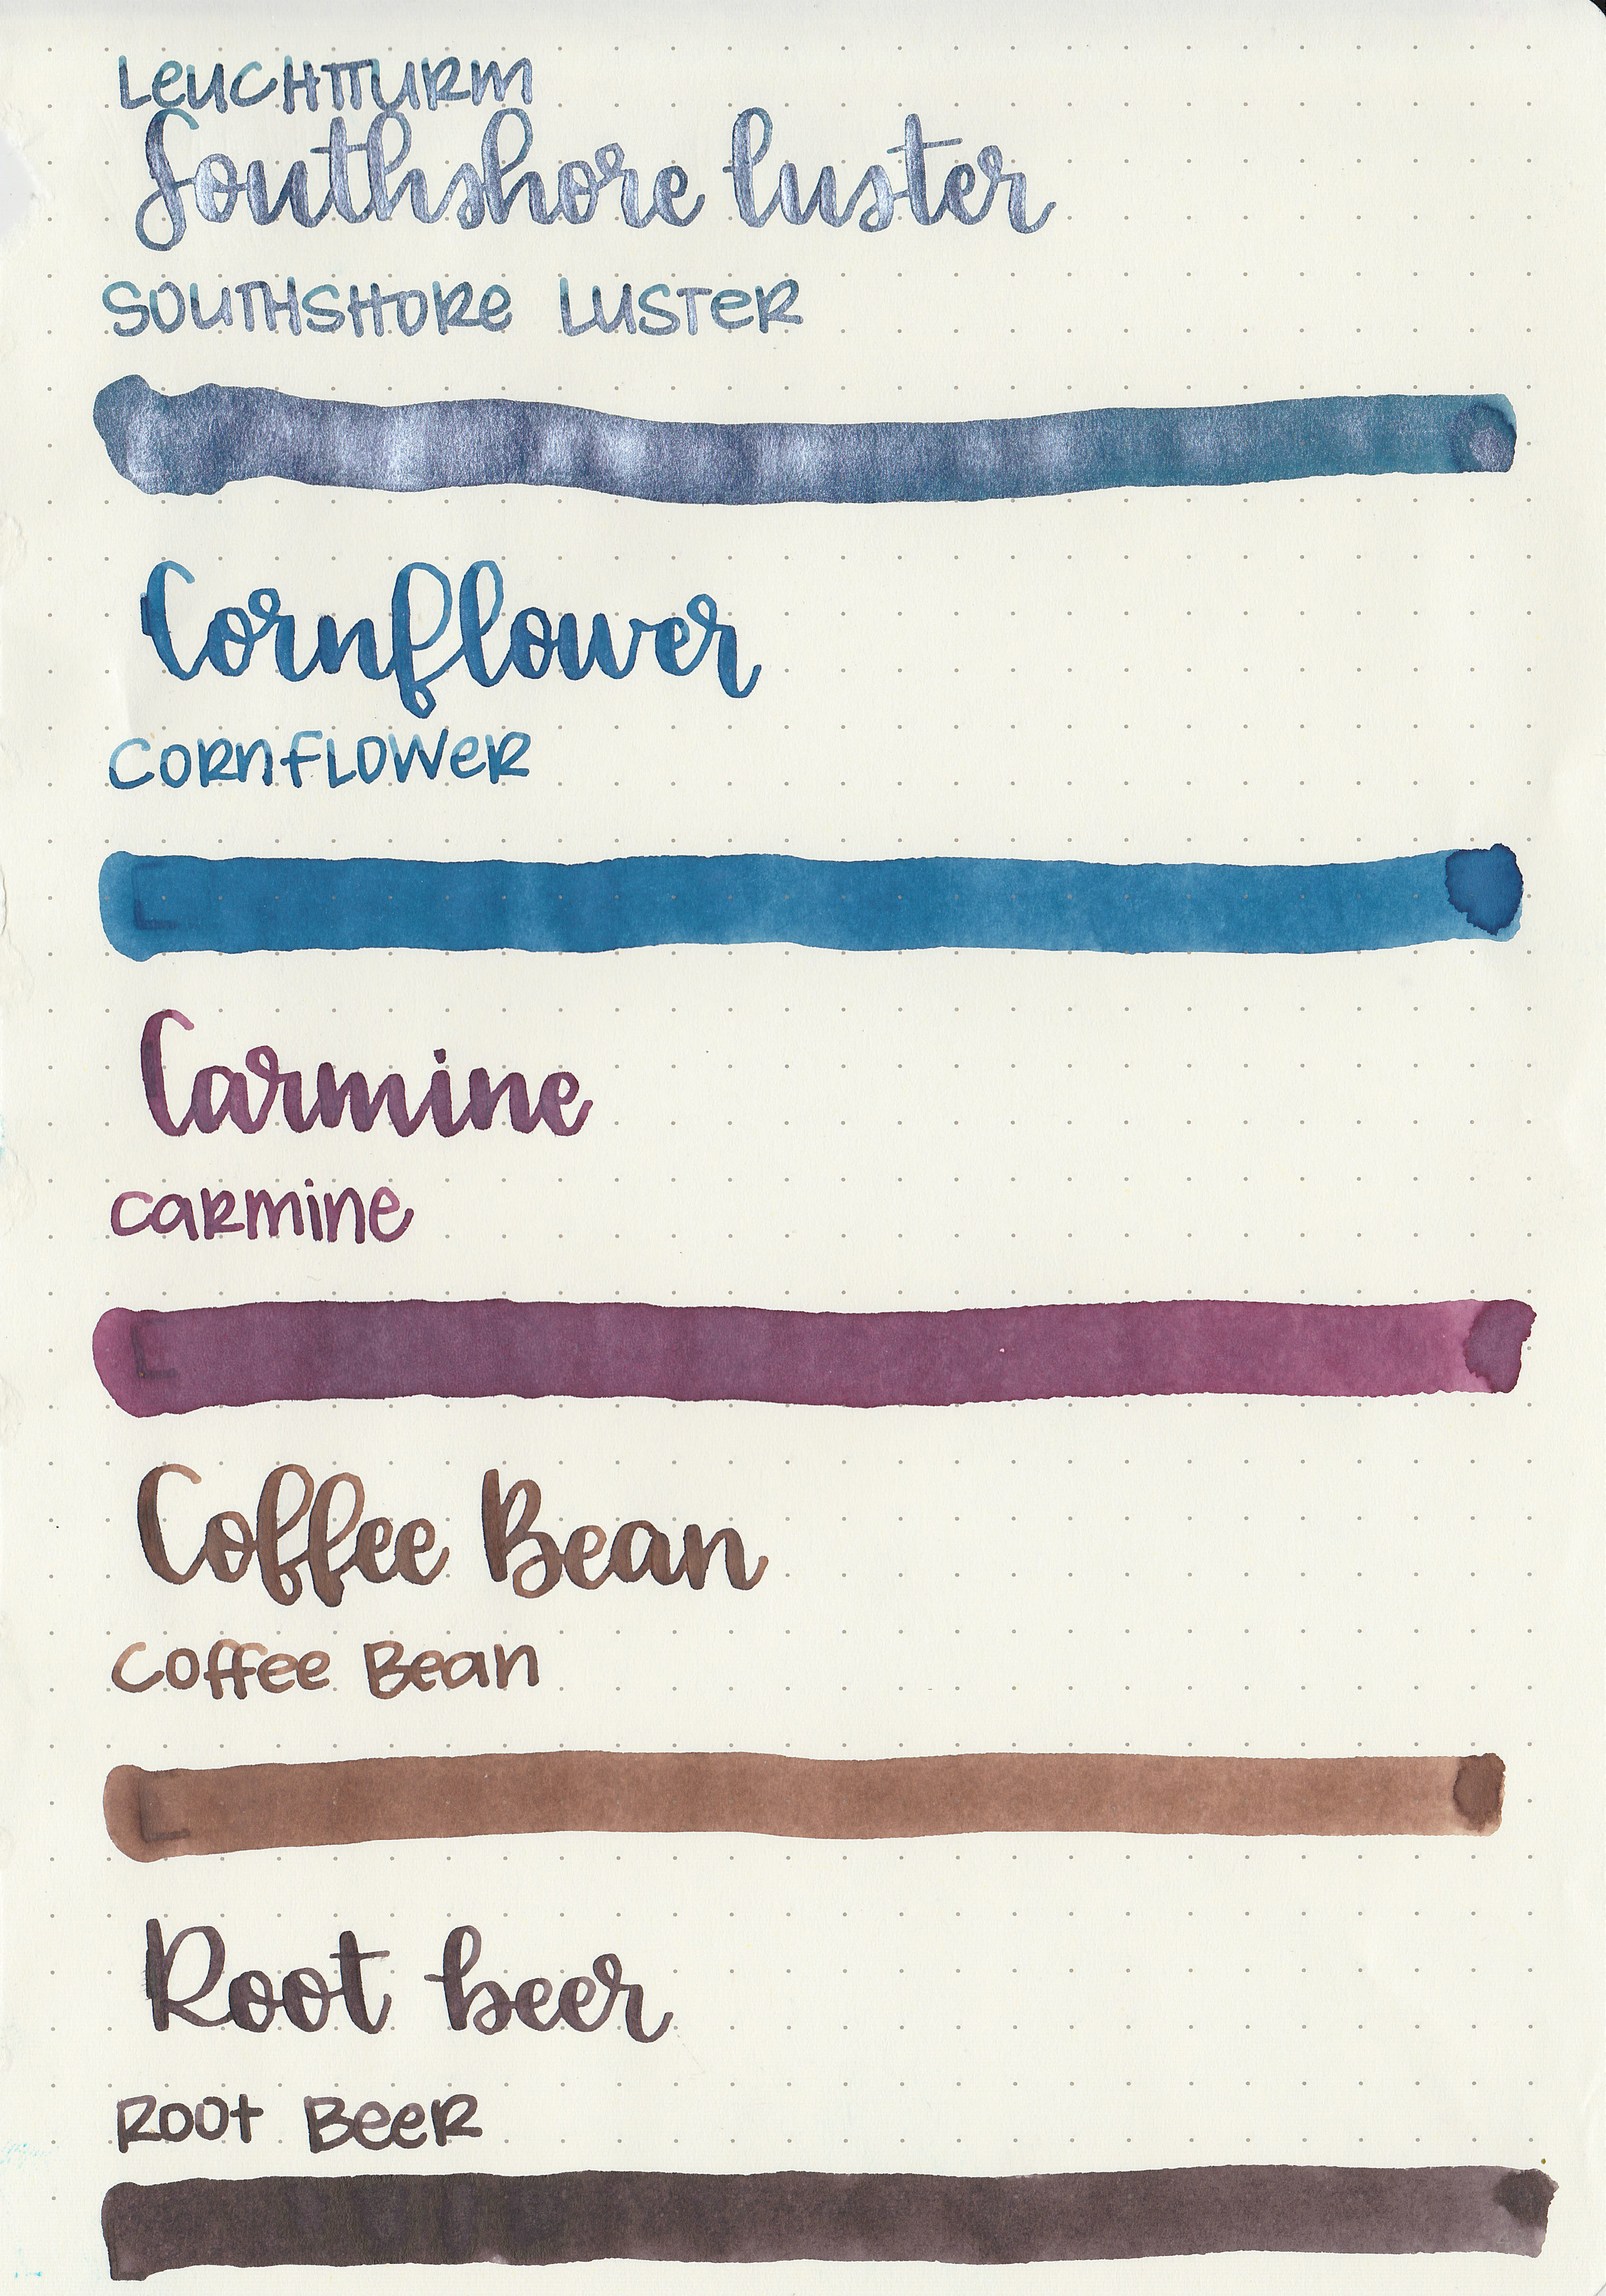 Leuchtturm
Southshore luster
Southshore Luster
Cornflower
Cornflower
Carmine
Carmine
Coffee Bean
Coffee Bean
Root beer
Root Beer